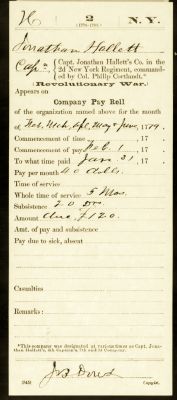 H 2 N. Y.
(1776-1783)
Jonathan Hallett
Capt., Capt. Jonathan Hallett's Co. in the
2d New York Regiment, command-
ed by Col. Philip Cortlandt.*
(Revolutionary War.)
Appears on
Company Pay Roll
of the organization named above for the month
of Feb, Mch, Apl, May & June, 1779.
Commencement of time , 17 .
Commencement of pay Feb. 1 , 17 .
To what time paid , 17 .
Pay per month 40 dolls.
Time of service
Whole time of service 5 Mos.
Subsistence 20
Amount £120.
Amt. of pay and subsistence
Pay due to sick, absent
Casualties
Remarks:
*This company was designated at various times as Capt. Jona-
than Hallett's, 4th Captain's, 7th and 8t Company.
Copyist.